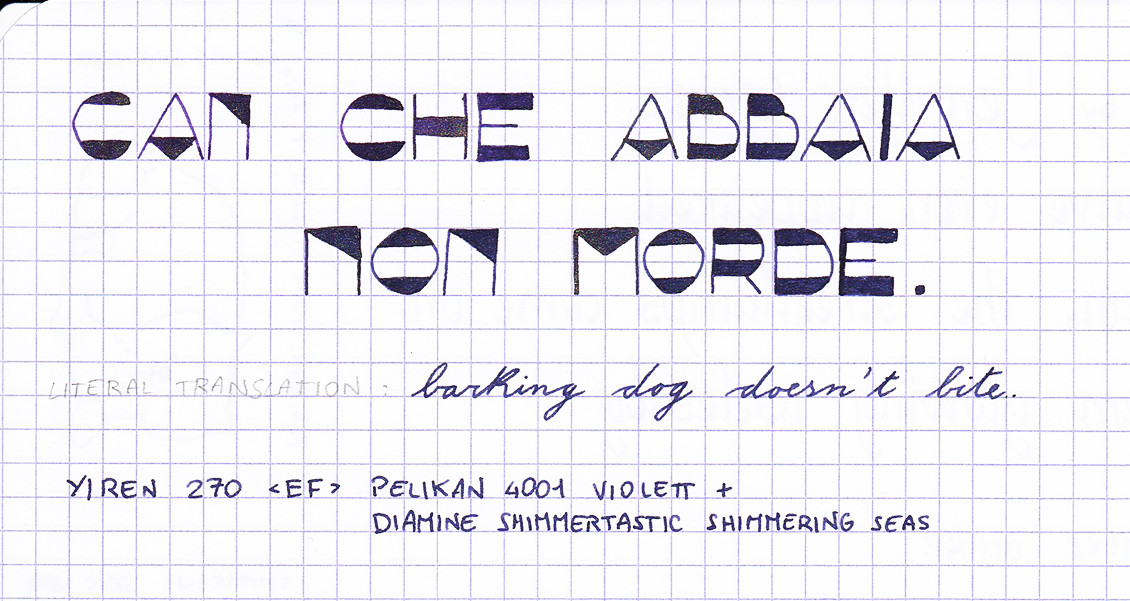 CAN CHE ABBAIA
NON MORDE.
LITERAL TRANSLATION: barking dog doesn't bite.
YIREN 270 <EF> PELIKAN 4001 VIOLETT +
DIAMINE SHIMMERTASTIC SHIMMERING SEAS